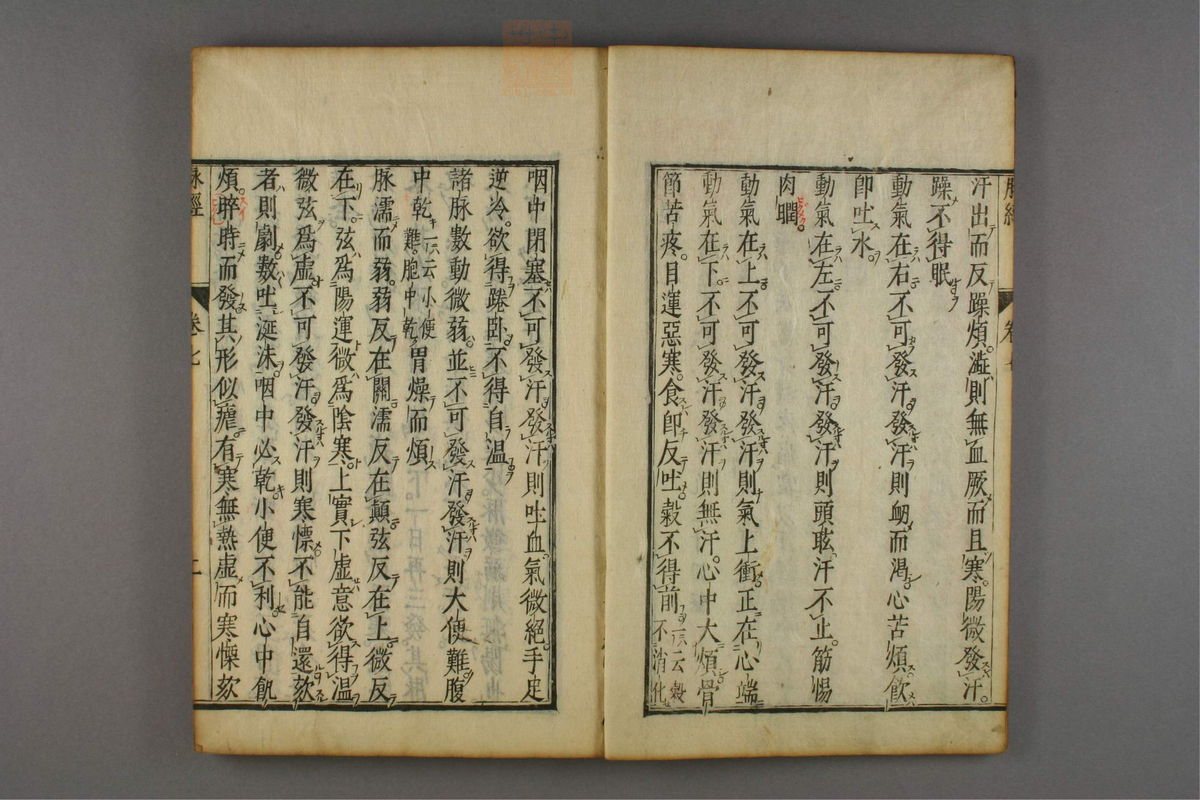 汗出而反躁煩澁則無血厥而且寒陽微發汗
躁不得眠
動氣在右不可發汗發汗則衂而渴心苦煩飲
卽吐水
動氣在左不可發汗發汗則頭眩汗不止筋惕
肉瞤
動氣在上不可發汗發汗則氣上衝正在心端
動氣在下不可發汗發汗則無汗心中大煩骨
節苦疼目運惡寒食卽反吐穀不得前一云穀不消化
脉經
卷七
咽中閉塞不可發汗發汗則吐血氣微絕手足
逆冷欲得踡卧不得自温
諸脉數動微弱並不可發汗發汗則大便難腹
中乾一云小便難胞中乾胃燥而煩
脉濡而弱弱反在關濡反在顛弦反在上微反
在下弦爲陽運微爲陰寒上實下虛意欲得温
微弦爲虛不可發汗發汗則寒慄不能自還欬
者則劇數吐涎沫咽中必乾小便不利心中飢
煩晬時而發其形似瘧有寒無熱虛而寒慄欬
脉經
卷七
二